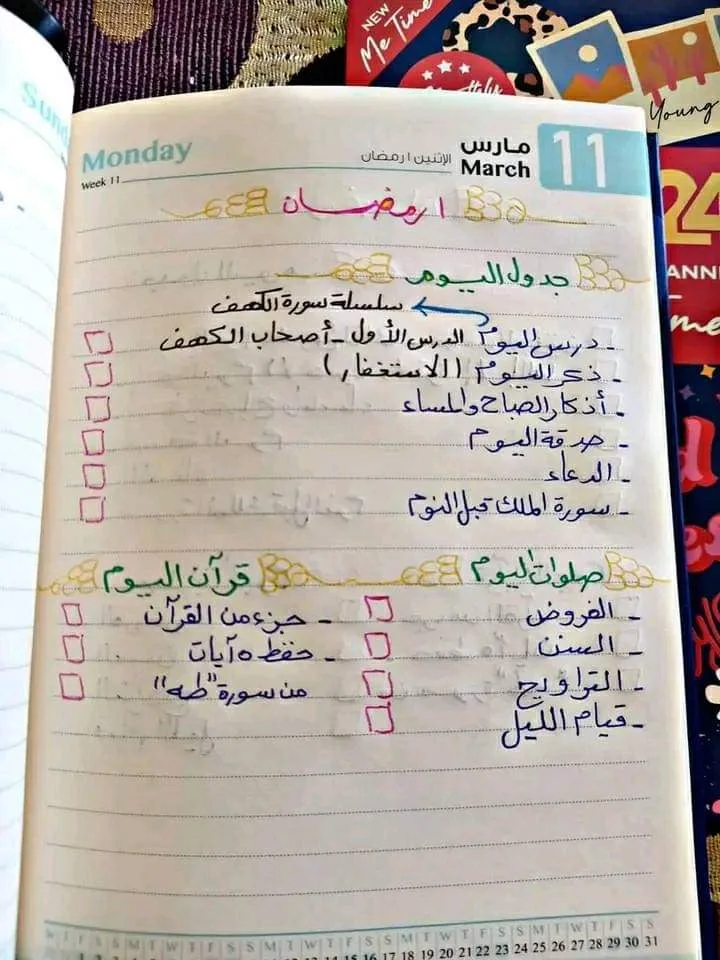 NEW
Me Time
Young
24
Sund
Monday
Week 11
الإثنين ١ رمضان
مارس
March
11
١ رمضان
جدول اليوم
سلسلة سورة الكهف
- درس اليوم الدرس الأول - أصحاب الكهف
- ذكر اليوم (الاستغفار)
- أذكار الصباح والمساء
- صدقة اليوم
- الدعاء
- سورة الملك قبل النوم
صلوات اليوم
- الفروض
- السنن
- التراويح
- قيام الليل
قرآن اليوم
- جزء من القرآن
- حفظ ٥ آيات
من سورة "طه"
W T F S S M T W T F S S M T W T F S S M T W T F S S M T W T F S S
1 2 3 4 5 6 7 8 9 10 11 12 13 14 15 16 17 18 19 20 21 22 23 24 25 26 27 28 29 30 31